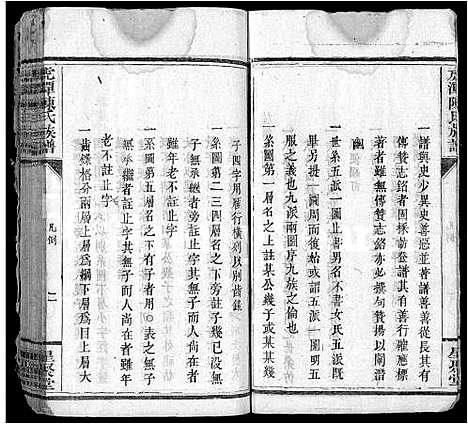 虎潭陳氏族譜
凡例
星聚堂
一譜與史少異史善惡並著譜善善從長其有
傳贊志銘者固提前登譜其有善行確應標
著者雖無傳贊志銘亦必撰句贊揚以發潛
幽
一世系五派一圖止書男名不書女氏五派一
畢另提一圖周而復始或謂五派一圖明五
服之義也九派兩圖序九族之倫也
一系圖第一層名之上註某公幾子或某某幾
子四字用雁行橫列以別皆錄
一系圖第二三四層名之下旁註子幾已設無
子無承繼者旁註止字其無子而人尚在者
雖年老不註止字
一系圖第五層名之下有子者用○表之無子
無承繼者註止字其無子而人尚在者雖年
老不註止字
一齒錄格分兩層上層為綱下層為目上層大
虎潭陳氏族譜
凡例
二
星聚堂